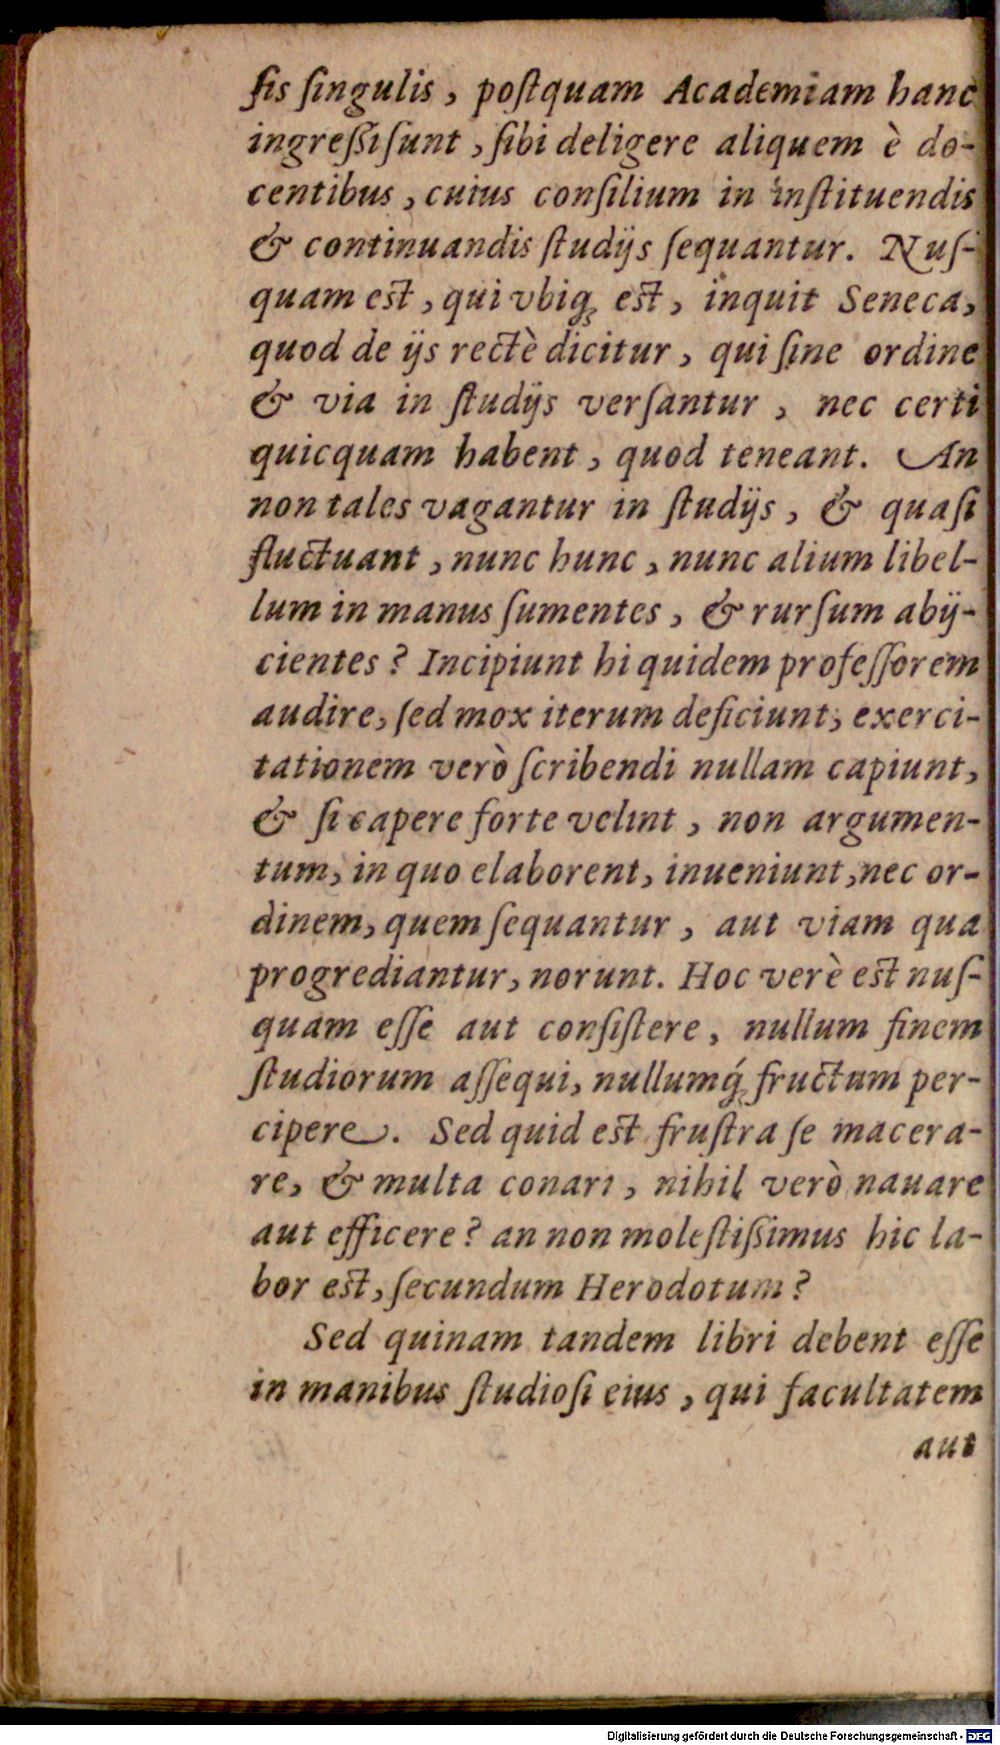 ſis ſingulis, poſtquam Academiam hanc
ingreßi ſunt, ſibi deligere aliquem è do-
centibus, cuius conſilium in inſtituendis
& continuandis ſtudijs ſequantur. Nuſ-
quam eſt, qui vbiq; eſt, inquit Seneca,
quod de ijs rectè dicitur, qui ſine ordine
& via in ſtudijs verſantur, nec certi
quicquam habent, quod teneant. An
non tales vagantur in ſtudijs, & quaſi
fluctuant, nunc hunc, nunc alium libel-
lum in manus ſumentes, & rurſum abij-
cientes? Incipiunt hi quidem profeſſorem
audire, ſed mox iterum deficiunt; exerci-
tationem verò ſcribendi nullam capiunt,
& ſi capere forte velint, non argumen-
tum, in quo elaborent, inueniunt, nec or-
dinem, quem ſequantur, aut viam qua
progrediantur, norunt. Hoc verè eſt nuſ-
quam eſſe aut conſiſtere, nullum finem
ſtudiorum aſſequi, nullumq́; fructum per-
cipere. Sed quid eſt fruſtra ſe macera-
re, & multa conari, nihil verò nauare
aut efficere? an non moleſtißimus hic la-
bor eſt, ſecundum Herodotum?
Sed quinam tandem libri debent eſſe
in manibus ſtudioſi eius, qui facultatem
aut
Digitalisierung gefördert durch die Deutsche Forschungsgemeinschaft - DFG